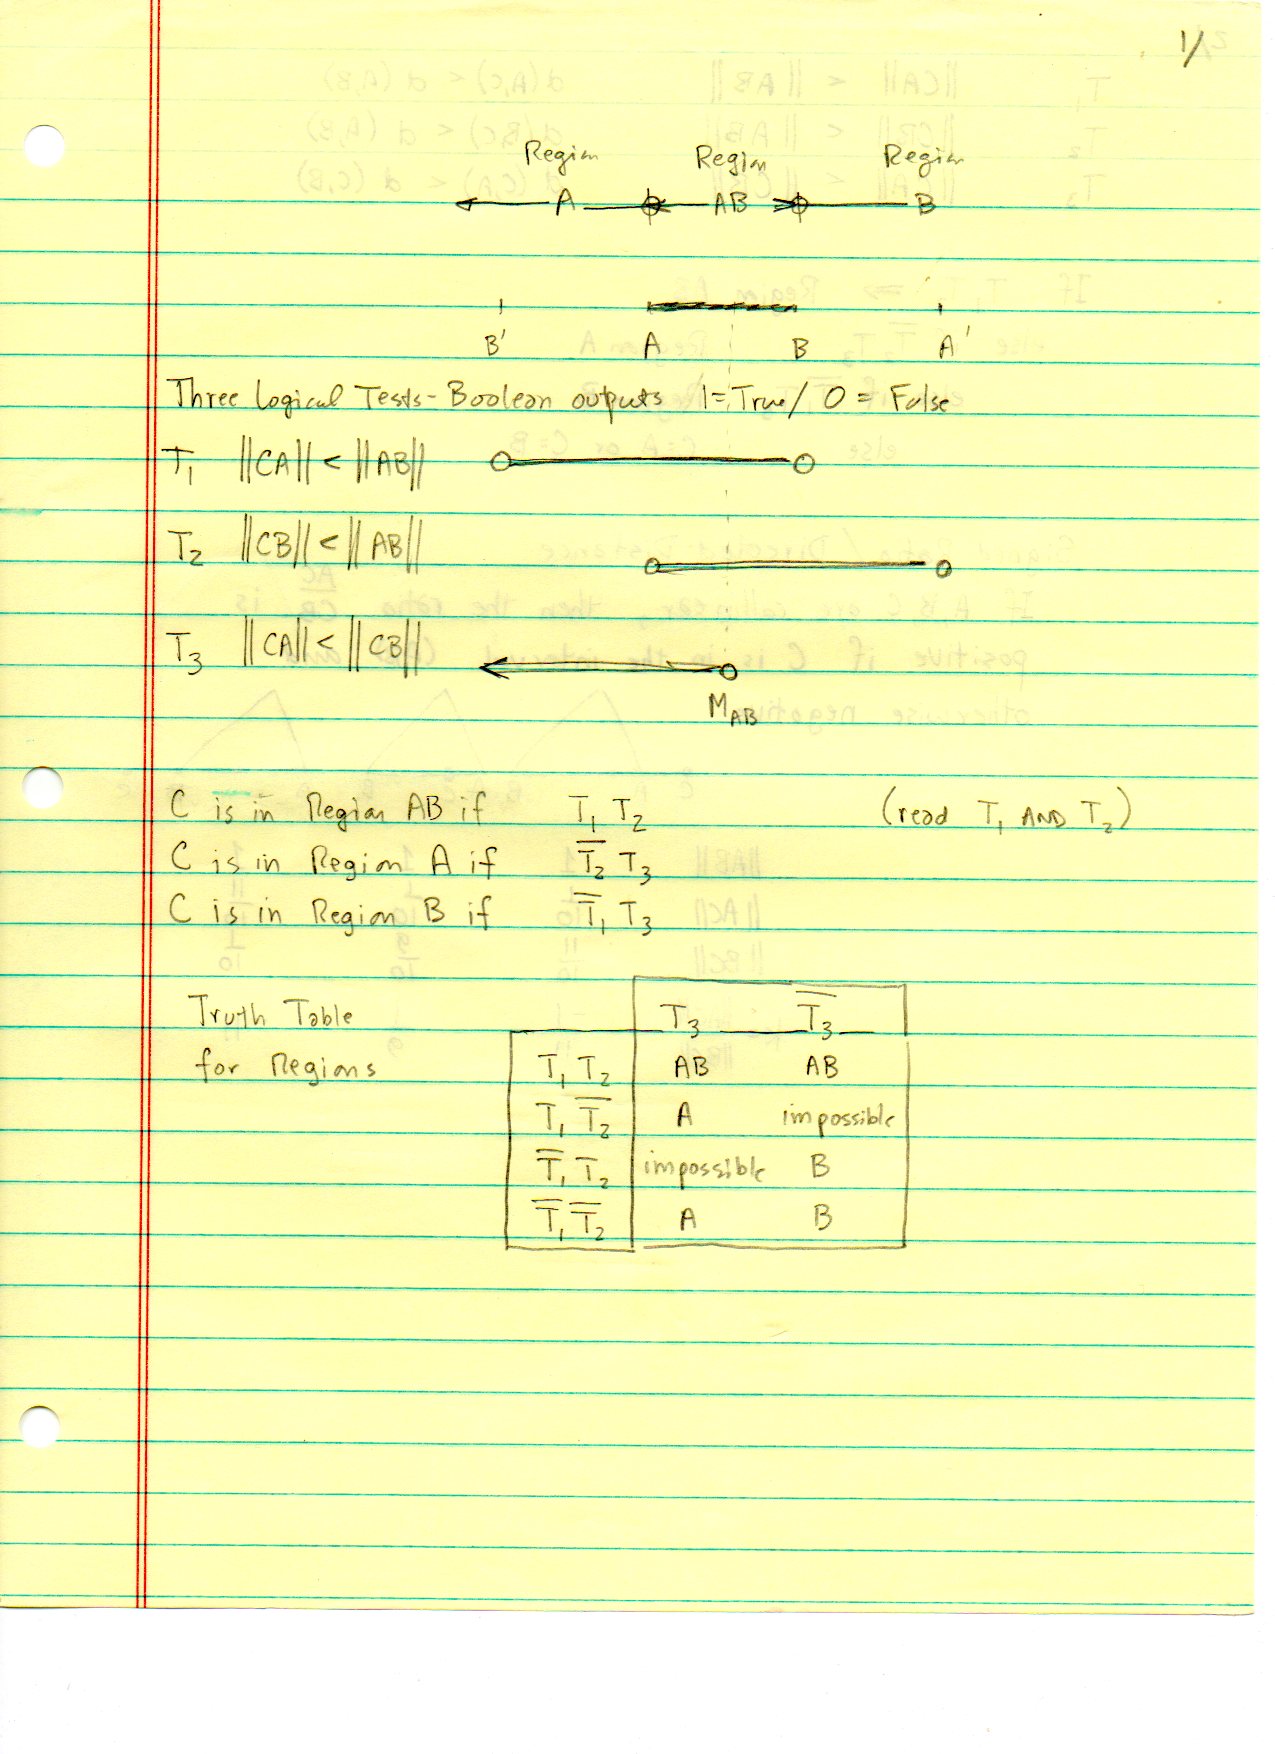 1/
Region Region Region
A AB B
B' A B A'
Three Logical Tests - Boolean outputs 1=True/ 0 = False
T₁ ||CA|| < ||AB||
T₂ ||CB|| < ||AB||
T₃ ||CA|| < ||CB||
M_AB
C is in Region AB if T₁ T₂ (read T₁ AND T₂)
C is in Region A if T̅₂ T₃
C is in Region B if T̅₁ T₃
Truth Table T₃ T̅₃
for Regions T₁ T₂ AB AB
T₁ T̅₂ A impossible
T̅₁ T₂ impossible B
T̅₁ T̅₂ A B